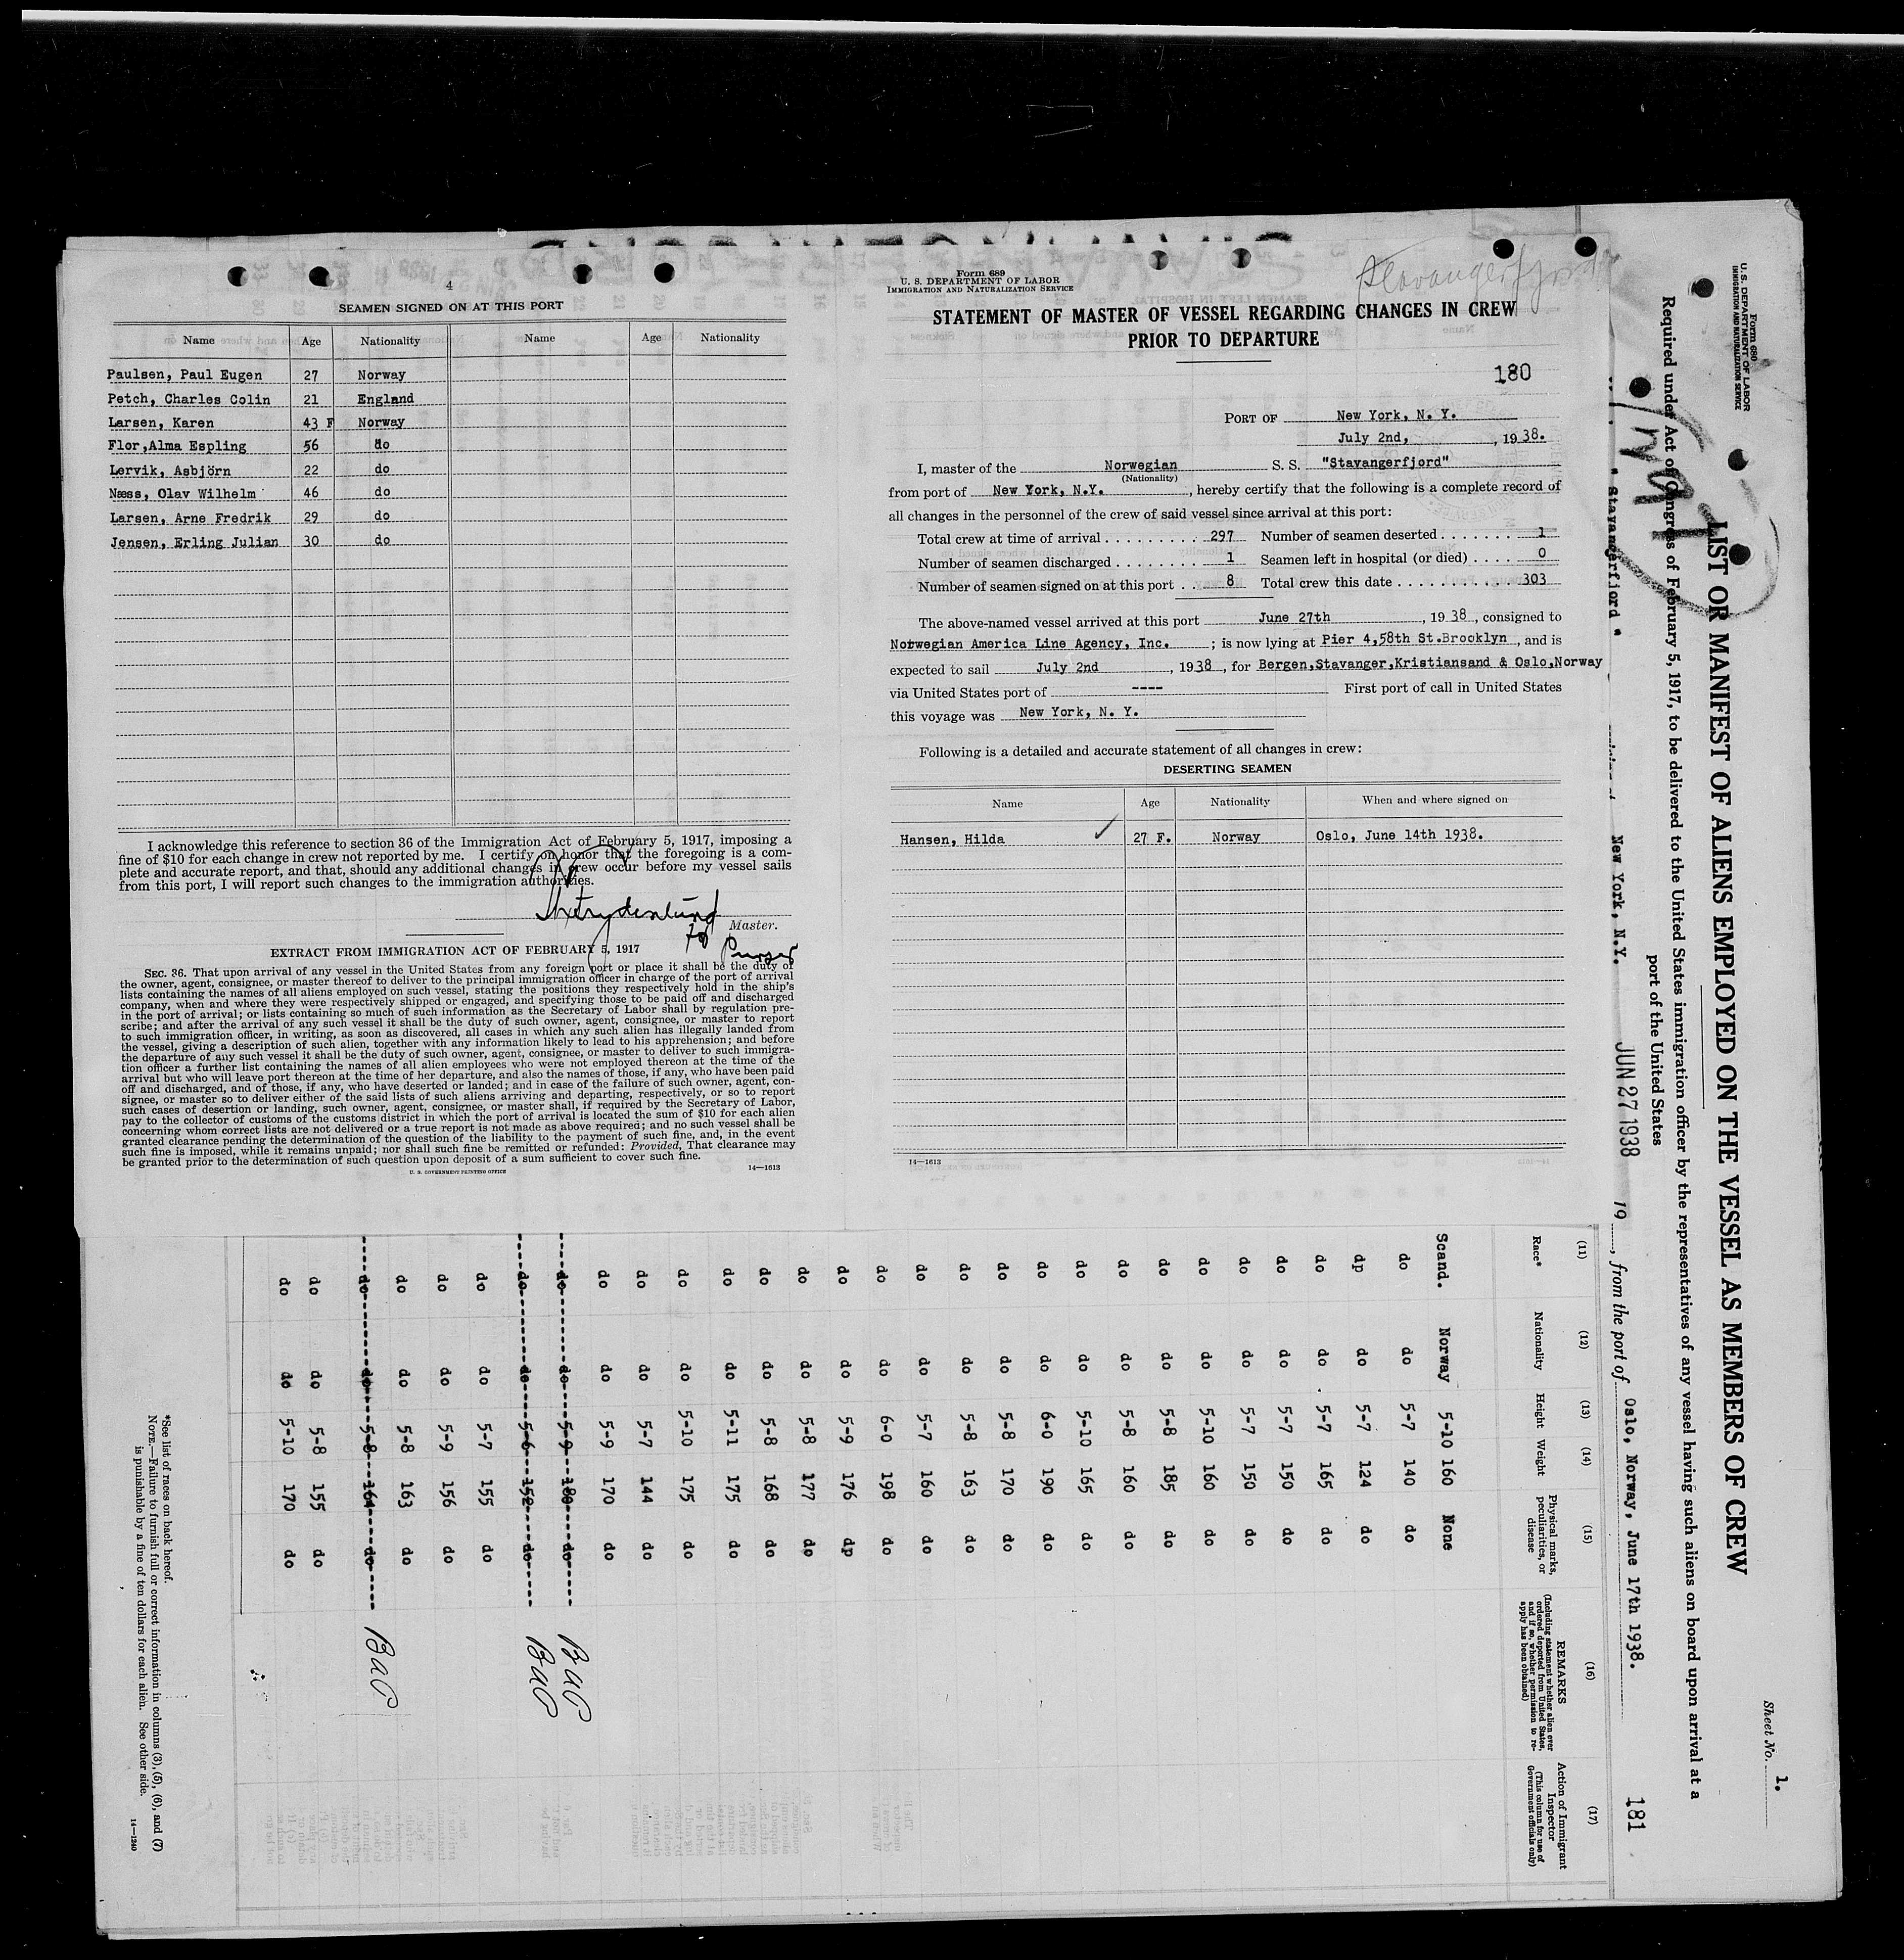 4
SEAMEN SIGNED ON AT THIS PORT
Name Age Nationality Name Age Nationality
Paulsen, Paul Eugen 27 Norway
Petch, Charles Colin 21 England
Larsen, Karen 43 F Norway
Flor,Alma Espling 56 do
Lervik, Asbjörn 22 do
Næss, Olav Wilhelm 46 do
Larsen, Arne Fredrik 29 do
Jensen, Erling Julian 30 do
I acknowledge this reference to section 36 of the Immigration Act of February 5, 1917, imposing a
fine of $10 for each change in crew not reported by me. I certify on honor that the foregoing is a com-
plete and accurate report, and that, should any additional changes in crew occur before my vessel sails
from this port, I will report such changes to the immigration authorities.
Master.
Purser
EXTRACT FROM IMMIGRATION ACT OF FEBRUARY 5, 1917
SEC. 36. That upon arrival of any vessel in the United States from any foreign port or place it shall be the duty of
the owner, agent, consignee, or master thereof to deliver to the principal immigration officer in charge of the port of arrival
lists containing the names of all aliens employed on such vessel, stating the positions they respectively hold in the ship's
company, when and where they were respectively shipped or engaged, and specifying those to be paid off and discharged
in the port of arrival; or lists containing so much of such information as the Secretary of Labor shall by regulation pre-
scribe; and after the arrival of any such vessel it shall be the duty of such owner, agent, consignee, or master to report
to such immigration officer, in writing, as soon as discovered, all cases in which any such alien has illegally landed from
the vessel, giving a description of such alien, together with any information likely to lead to his apprehension; and before
the departure of any such vessel it shall be the duty of such owner, agent, consignee, or master to deliver to such immigra-
tion officer a further list containing the names of all alien employees who were not employed thereon at the time of the
arrival but who will leave port thereon at the time of her departure, and also the names of those, if any, who have been paid
off and discharged, and of those, if any, who have deserted or landed; and in case of the failure of such owner, agent, con-
signee, or master so to deliver either of the said lists of such aliens arriving and departing, respectively, or so to report
such cases of desertion or landing, such owner, agent, consignee, or master shall, if required by the Secretary of Labor,
pay to the collector of customs of the customs district in which the port of arrival is located the sum of $10 for each alien
concerning whom correct lists are not delivered or a true report is not made as above required; and no such vessel shall be
granted clearance pending the determination of the question of the liability to the payment of such fine, and, in the event
such fine is imposed, while it remains unpaid; nor shall such fine be remitted or refunded: Provided, That clearance may
be granted prior to the determination of such question upon deposit of a sum sufficient to cover such fine.
U. S. GOVERNMENT PRINTING OFFICE 14—1613
Form 689
U. S. DEPARTMENT OF LABOR
IMMIGRATION AND NATURALIZATION SERVICE
Stavangerfjord
STATEMENT OF MASTER OF VESSEL REGARDING CHANGES IN CREW
PRIOR TO DEPARTURE
180
PORT OF New York, N. Y.
July 2nd, , 1938.
I, master of the Norwegian S. S. "Stavangerfjord"
(Nationality)
from port of New York, N.Y. , hereby certify that the following is a complete record of
all changes in the personnel of the crew of said vessel since arrival at this port:
Total crew at time of arrival . . . . . . . . . 297 Number of seamen deserted . . . . . . . 1
Number of seamen discharged . . . . . . . 1 Seamen left in hospital (or died) . . . . 0
Number of seamen signed on at this port . . 8 Total crew this date . . . . . . . . . . . . 303
The above-named vessel arrived at this port June 27th , 1938 , consigned to
Norwegian America Line Agency, Inc. ; is now lying at Pier 4,58th St.Brooklyn , and is
expected to sail July 2nd , 1938 , for Bergen,Stavanger,Kristiansand & Oslo,Norway
via United States port of ---- First port of call in United States
this voyage was New York, N. Y.
Following is a detailed and accurate statement of all changes in crew:
DESERTING SEAMEN
Name Age Nationality When and where signed on
Hansen, Hilda ✓ 27 F. Norway Oslo, June 14th 1938.
14—1613
Form 680
U. S. DEPARTMENT OF LABOR
IMMIGRATION AND NATURALIZATION SERVICE
Sheet No. 1.
LIST OR MANIFEST OF ALIENS EMPLOYED ON THE VESSEL AS MEMBERS OF CREW
Required under Act of Congress of February 5, 1917, to be delivered to the United States immigration officer by the representatives of any vessel having such aliens on board upon arrival at a
port of the United States
" Stavangerfjord " New York, N.Y. JUN 27 1938 19 , from the port of Oslo, Norway, June 17th 1938.
181
(11) (12) (13) (14) (15) (16) (17)
Race* Nationality Height Weight Physical marks, peculiarities, or disease REMARKS (Including statement whether alien ever ordered deported from United States, and if so, whether permission to re-apply has been obtained) Action of Immigrant Inspector (This column for use of Government officials only)
Scand. Norway 5-10 160 None
do do 5-7 140 do
dp do 5-7 124 do
do do 5-7 165 do
do do 5-7 150 do
do do 5-7 150 do
do do 5-10 160 do
do do 5-8 185 do
do do 5-8 160 do
do do 5-10 165 do
do do 6-0 190 do
do do 5-8 170 do
do do 5-8 163 do
do do 5-7 160 do
do do 6-0 198 do
do do 5-9 176 dp
do do 5-8 177 do
do do 5-8 168 do
do do 5-11 175 do
do do 5-10 175 do
do do 5-7 144 do
do do 5-9 170 do
do do 5-9 180 do
do do 5-6 152 do
do do 5-7 155 do
do do 5-9 156 do
do do 5-8 163 do
do do 5-8 164 do
do do 5-8 155 do
do do 5-10 170 do
*See list of races on back hereof.
NOTE.—Failure to furnish full or correct information in columns (3), (5), (6), and (7)
is punishable by a fine of ten dollars for each alien. See other side.
14—1240